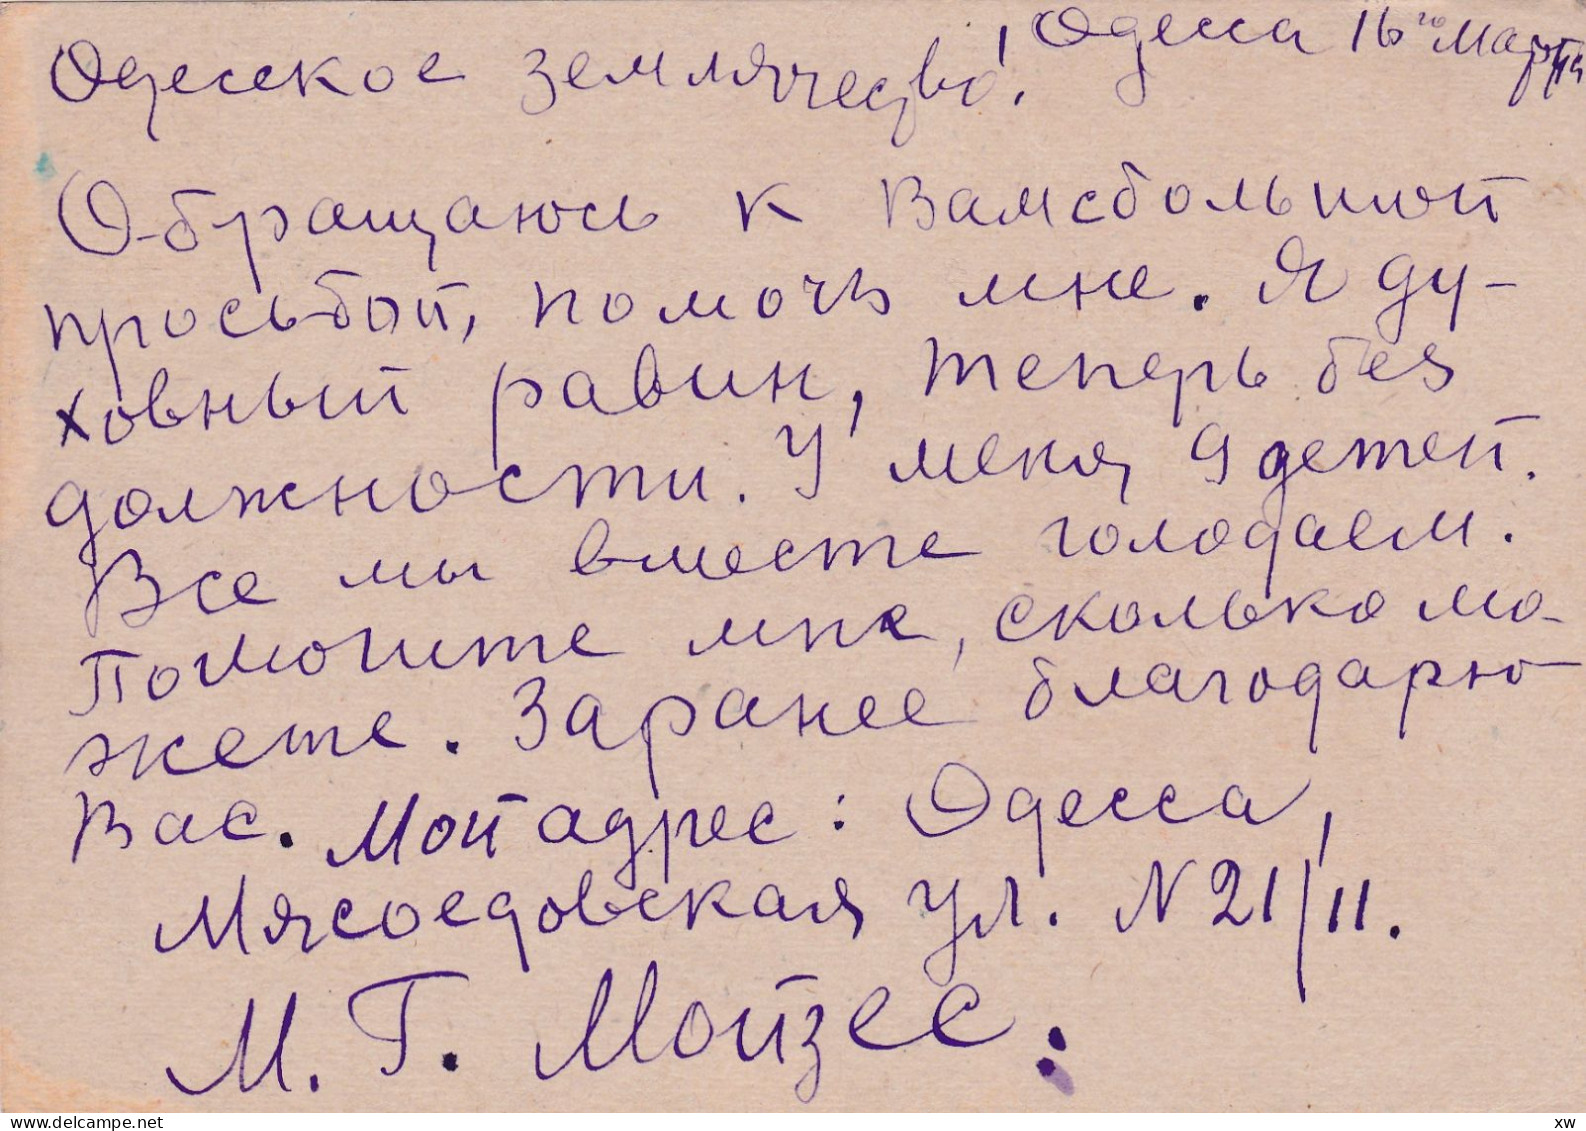 Одесса 16го Марта
Одесское землячество!
Обращаюсь к Вам с большой
просьбой, помочь мне. Я ду-
ховный равин, теперь без
должности. У меня 9 детей.
Все мы вместе голодаем.
Помогите мне, сколько мо-
жете. Заранее благодарю
Вас. Мой адрес: Одесса,
Мясоедовская ул. N 21/11.
М. Г. Мойзес.
delcampe.net
xw